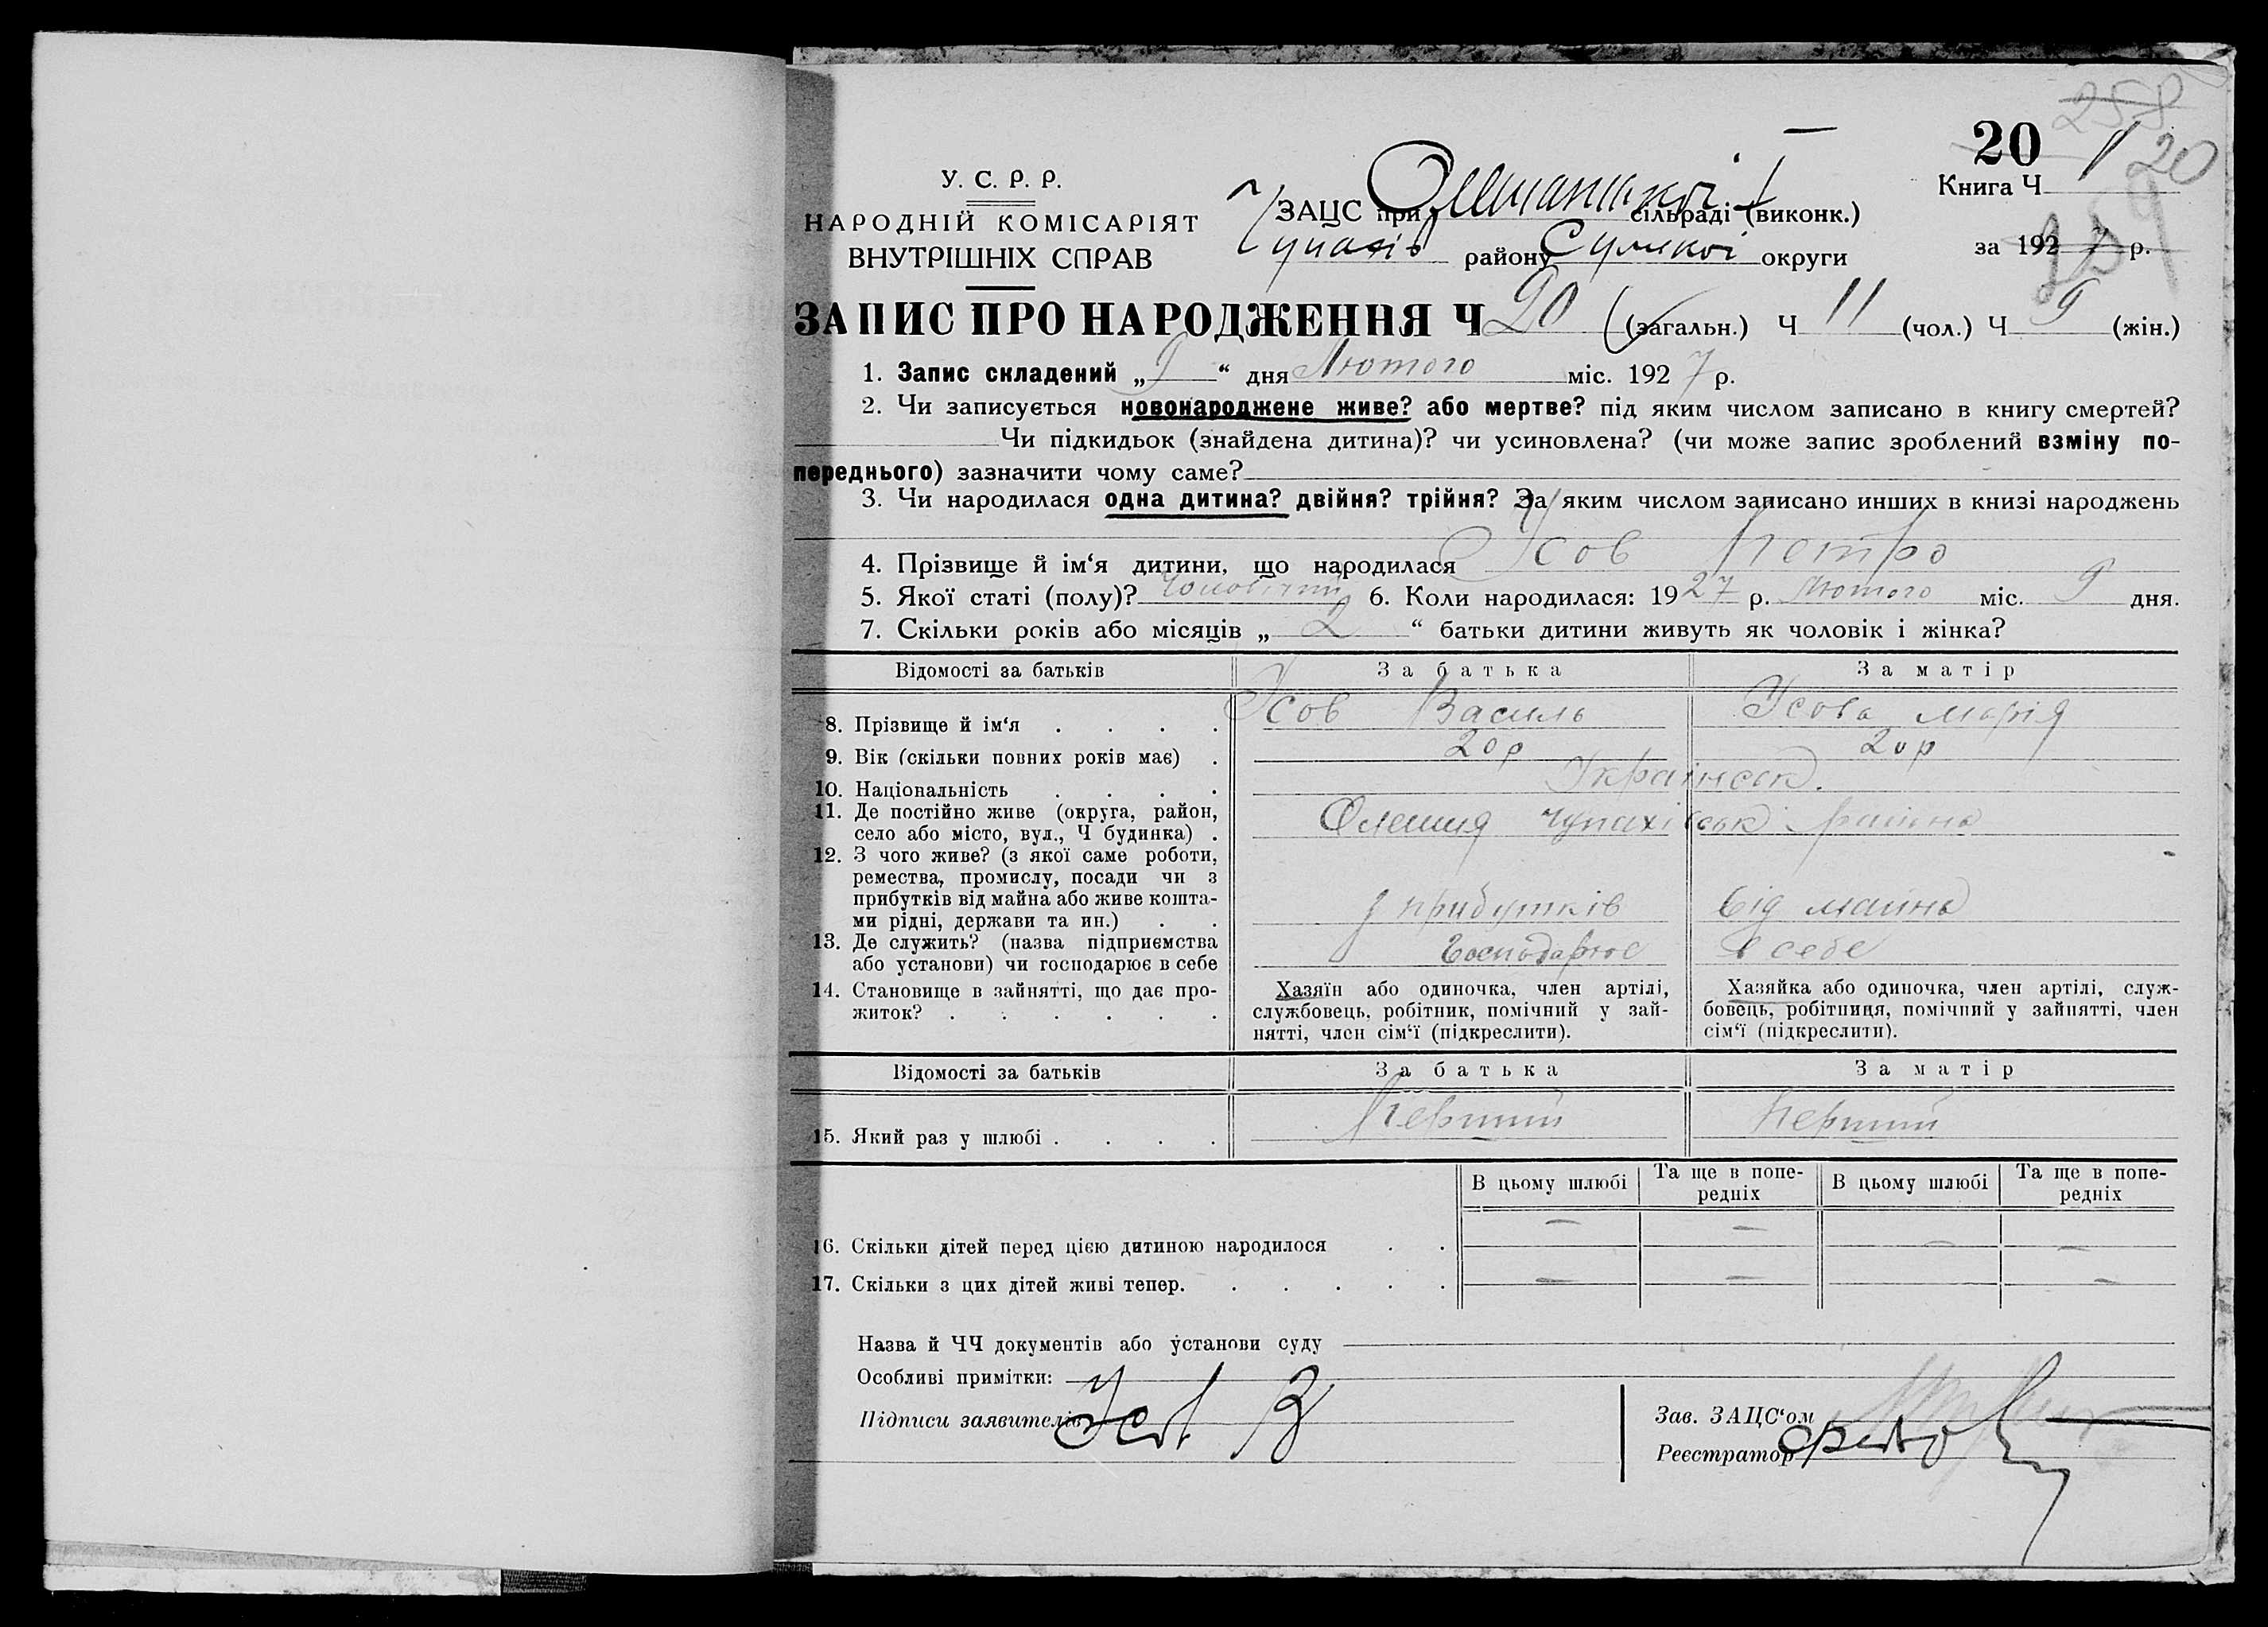 258
20 1 20
Книга Ч
259
У. С. Р. Р.
НАРОДНІЙ КОМІСАРІЯТ
ВНУТРІШНІХ СПРАВ
ЗАЦС при Олешанської сільраді (виконк.)
Чупахів району Сумської округи
за 1927 р.
ЗАПИС ПРО НАРОДЖЕННЯ Ч 20 (загальн.) Ч 11 (чол.) Ч 9 (жін.)
1. Запис складений „ 9 “ дня Лютого міс. 1927 р.
2. Чи записується новонароджене живе? або мертве? під яким числом записано в книгу смертей?
Чи підкидьок (знайдена дитина)? чи усиновлена? (чи може запис зроблений взміну по-
переднього) зазначити чому саме?
3. Чи народилася одна дитина? двійня? трійня? За яким числом записано инших в книзі народжень
4. Прізвище й ім‘я дитини, що народилася Усов Петро
5. Якої статі (полу)? Чоловічий 6. Коли народилася: 1927 р. Лютого міс. 9 дня.
7. Скільки років або місяців „ 2 “ батьки дитини живуть як чоловік і жінка?
Відомості за батьків За батька За матір
8. Прізвище й ім‘я . . . . Усов Василь Усова Марія
9. Вік (скільки повних років має) . 20 р 20 р
10. Національність . . . . Українськ.
11. Де постійно живе (округа, район,
село або місто, вул., Ч будинка) . Олешня Чупахівськ району
12. З чого живе? (з якої саме роботи,
ремества, промислу, посади чи з
прибутків від майна або живе кошта-
ми рідні, держави та ин.) . . з прибутків від майна
13. Де служить? (назва підприємства
або установи) чи господарює в себе Господарює в себе
14. Становище в зайнятті, що дає про-
житок? . . . . . .
Хазяїн або одиночка, член артілі,
службовець, робітник, помічний у зай-
нятті, член сім‘ї (підкреслити).
Хазяйка або одиночка, член артілі, служ-
бовець, робітниця, помічний у зайнятті, член
сім‘ї (підкреслити).
Відомості за батьків За батька За матір
15. Який раз у шлюбі . . . . Перший Перший
В цьому шлюбі Та ще в попе-
редніх В цьому шлюбі Та ще в попе-
редніх
16. Скільки дітей перед цією дитиною народилося . . — — — —
17. Скільки з цих дітей живі тепер. . . . . . — — —
Назва й ЧЧ документів або установи суду
Особливі примітки:
Підписи заявителів Усов В
Зав. ЗАЦС‘ом
Реєстратор